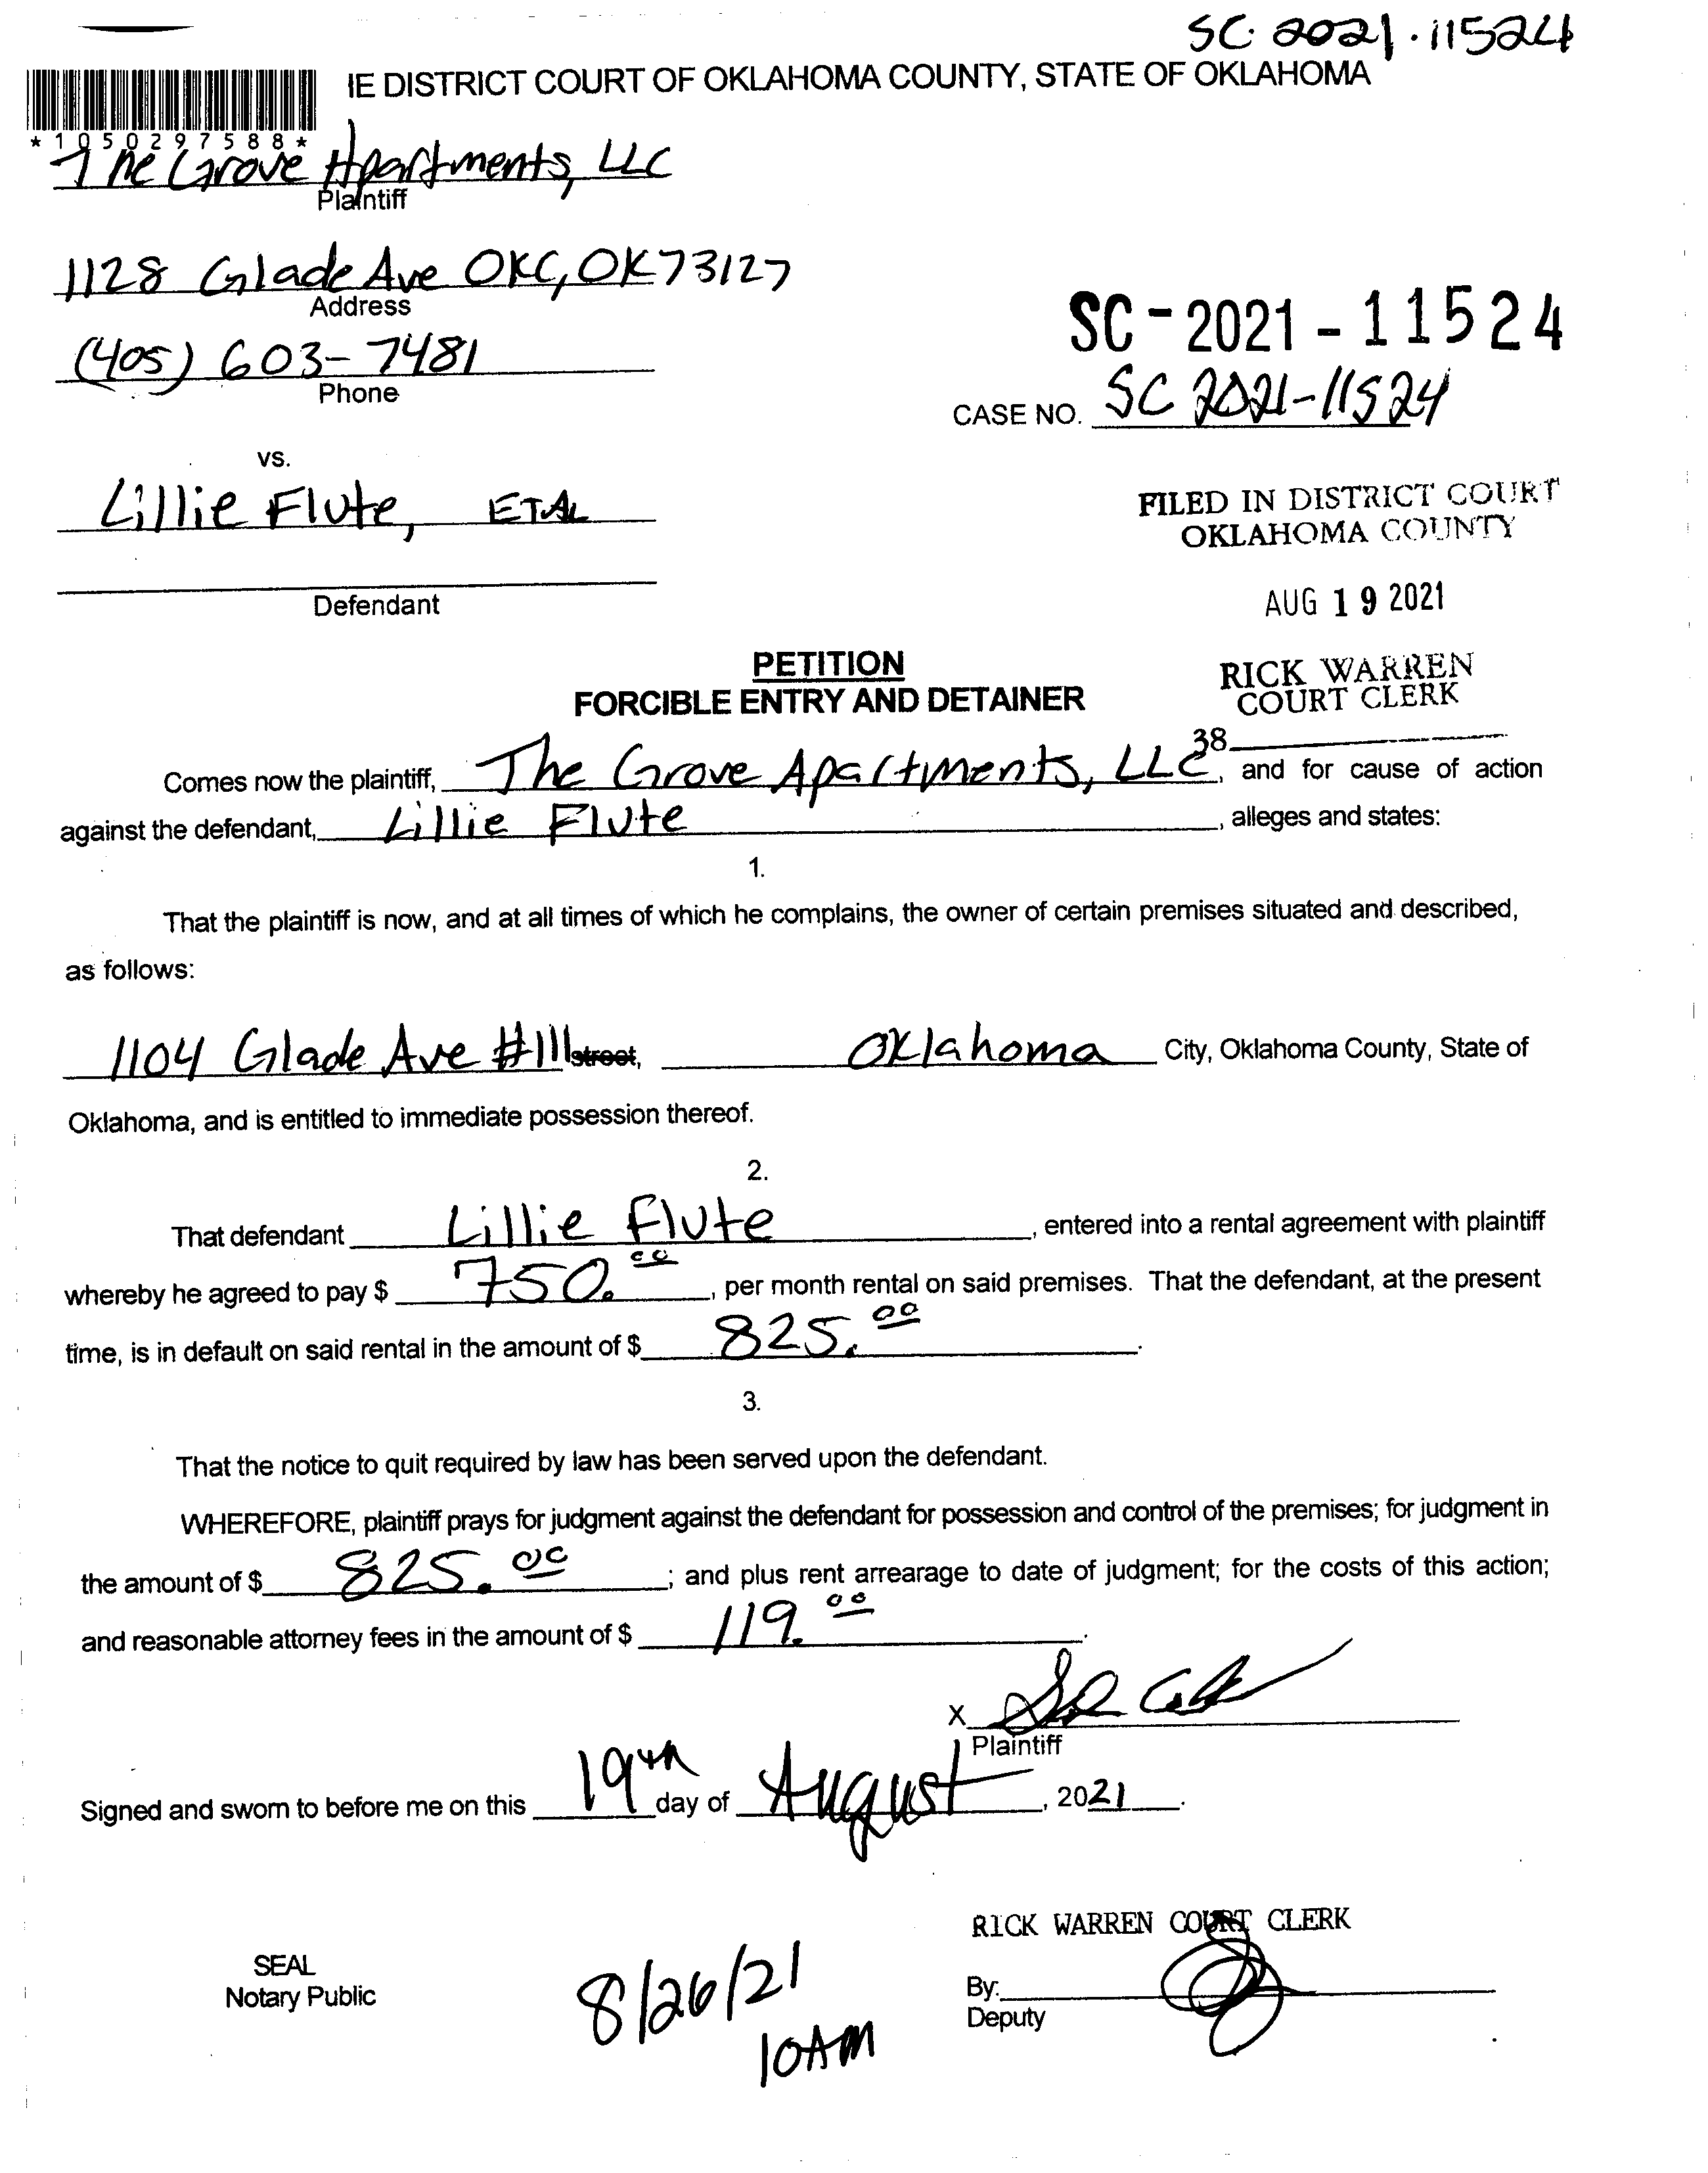 SC 2021-11524
IE DISTRICT COURT OF OKLAHOMA COUNTY, STATE OF OKLAHOMA
*1050297588*
The Grove Apartments, LLC
Plaintiff
1128 Glade Ave OKC, OK 73127
Address
(405) 603-7481
Phone
SC-2021-11524
CASE NO. SC 2021-11524
vs.
Lillie Flute, ETAL
Defendant
FILED IN DISTRICT COURT
OKLAHOMA COUNTY
AUG 19 2021
RICK WARREN
COURT CLERK
38
PETITION
FORCIBLE ENTRY AND DETAINER
Comes now the plaintiff, The Grove Apartments, LLC, and for cause of action
against the defendant, Lillie Flute, alleges and states:
1.
That the plaintiff is now, and at all times of which he complains, the owner of certain premises situated and described,
as follows:
1104 Glade Ave #111 street, Oklahoma City, Oklahoma County, State of
Oklahoma, and is entitled to immediate possession thereof.
2.
That defendant Lillie Flute, entered into a rental agreement with plaintiff
whereby he agreed to pay $ 750.00, per month rental on said premises. That the defendant, at the present
time, is in default on said rental in the amount of $ 825.00.
3.
That the notice to quit required by law has been served upon the defendant.
WHEREFORE, plaintiff prays for judgment against the defendant for possession and control of the premises; for judgment in
the amount of $ 825.00; and plus rent arrearage to date of judgment; for the costs of this action;
and reasonable attorney fees in the amount of $ 119.00.
X
Plaintiff
Signed and sworn to before me on this 19th day of August, 2021.
RICK WARREN COURT CLERK
SEAL
Notary Public
By:
Deputy
8/26/21
10AM